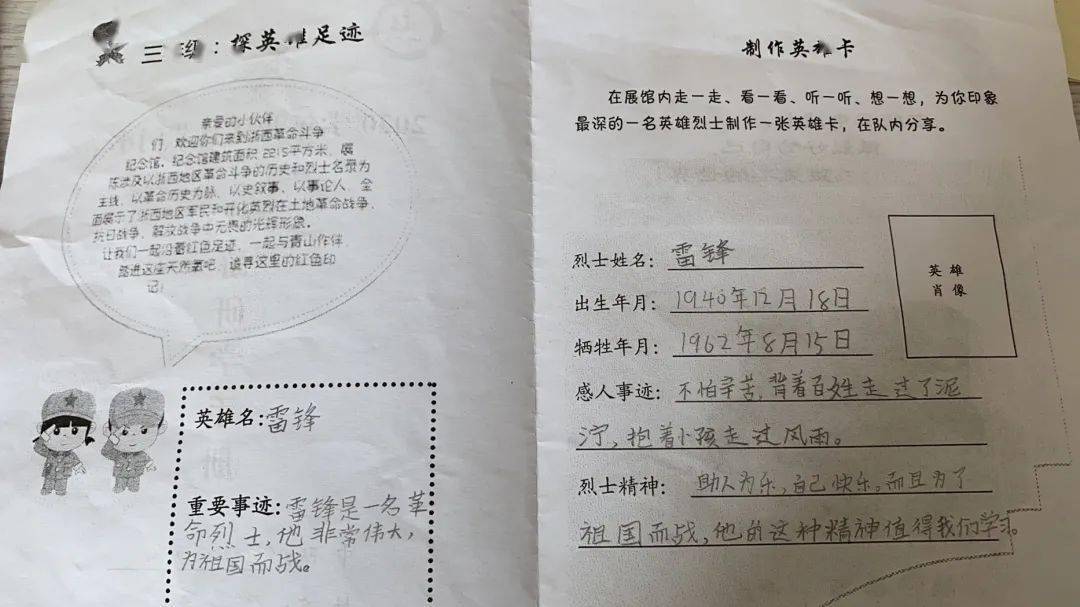 三 : 探英雄足迹
亲爱的小伙伴
们，欢迎你们来到浙西革命斗争
纪念馆。纪念馆建筑面积 2215平方米，展
陈涉及以浙西地区革命斗争的历史和烈士名录为
主线，以革命历史为脉，以史叙事、以事论人，全
面展示了浙西地区军民和开化英烈在土地革命战争、
抗日战争、解放战争中无畏的光辉形象。
让我们一起沿着红色足迹，一起与青山作伴，
踏进这座天然氧吧，追寻这里的红色印
记！
英雄名:雷锋
重要事迹:雷锋是一名革
命烈士,他非常伟大,
为祖国而战。
制作英雄卡
在展馆内走一走、看一看、听一听、想一想，为你印象
最深的一名英雄烈士制作一张英雄卡，在队内分享。
英雄
肖像
烈士姓名：雷锋
出生年月：1940年12月18日
牺牲年月：1962年8月15日
感人事迹：不怕辛苦,背着百姓走过了泥
泞,抱着小孩走过风雨。
烈士精神：助人为乐,自己快乐。而且为了
祖国而战,他的这种精神值得我们学习。